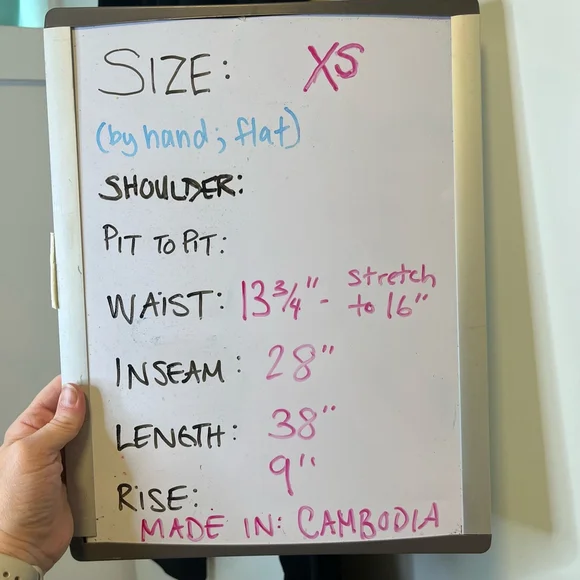 SIZE: XS
(by hand; flat)
SHOULDER:
PIT TO PIT:
WAIST: 13 3/4" - stretch to 16"
INSEAM: 28"
LENGTH: 38"
RISE: 9"
MADE IN: CAMBODIA